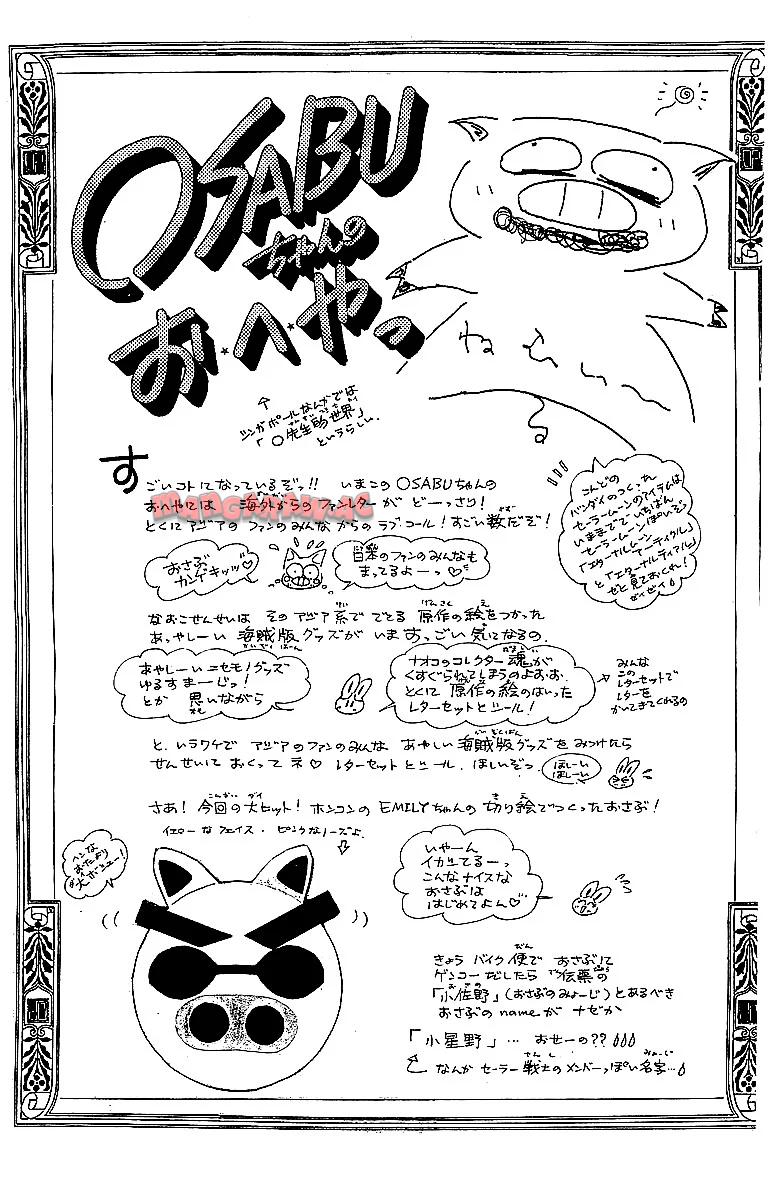 OSABU
ちゃんの
お・へ・やっ
ねむいー
↑
シンガポールなんかでは
「〇先生的世界」
というらしい.
すごいコトになっているぞっ!! いまこの OSABUちゃんの
おへやには 海外からのファンレターが どーっさり!
とくにアジアの ファンのみんなからのラブコール! すごい数だぞ!
こんどの
バンダイのつくった
セーラームーンのアイテムは
いままでで いちばん
セーラームーンぽいぞ
「エターナルムーン
アーティクル」
と「エターナルティアル」
ぜひ見ておくれ!
ゼイゼイ
おさぶ
カンゲキッッ♡
日本のファンのみんなも
まってるよーっ♡
なおこせんせいは そのアジア系で でてる 原作の絵をつかった
あっやしーい 海賊版グッズが いま すっごい気になるの.
あやしーいニセモノグッズ
ゆるすまーじっ!
とか 思いながら
ナオコのコレクター魂が
くすぐられてしまうのよおお.
とくに 原作の絵のはいった
レターセットとシール!
みんな
この
レターセットで
レターを
かいてきてくれるの
と.いうワケで アジアのファンのみんな あやしい海賊版グッズをみつけたら
せんせいに おくって ネ♡ レターセットとシール. ほしいぞっ
ほしーい
ほしーい
さあ! 今回の大ヒット! ホンコンの EMILYちゃんの 切り絵でつくったおさぶ!
イエローなフェイス・ピンクなノーズよ
ヘンな
おたより
大ボシュー!
いやーん
イカせてるーっ
こんなナイスな
おさぶは
はじめてよん♡
きょう バイク便で おさぶに
ゲンコーだしたら 伝票の
「小佐野」(おさぶのみょーじ)とあるべき
おさぶのnameが ナゼか
「小星野」… おせーの??
なんか セーラー戦士のメンバーっぽい名字…